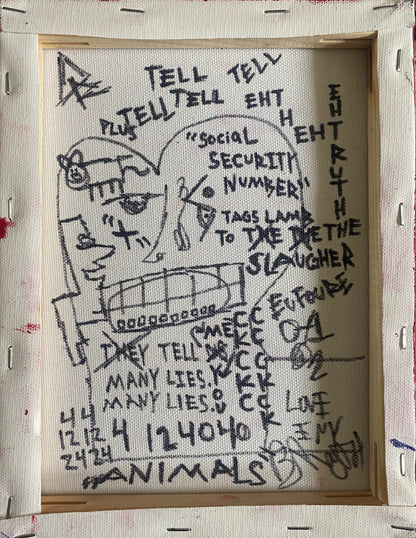 TELL TELL
TELL TELL EHT
PLUS
H
EHT
EHTRUTH
"SOCIAL
SECURITY
NUMBER"
"+"
TAGS LAMB
TO THE THE THE
SLAUGHER
EUFOURE
CC
KC
CC
KK
CC
K
THEY TELL
MANY LIES.
MANY LIES.
LOVE
I
NY
4 4
12 12
24 24
4 124040
ANIMALS